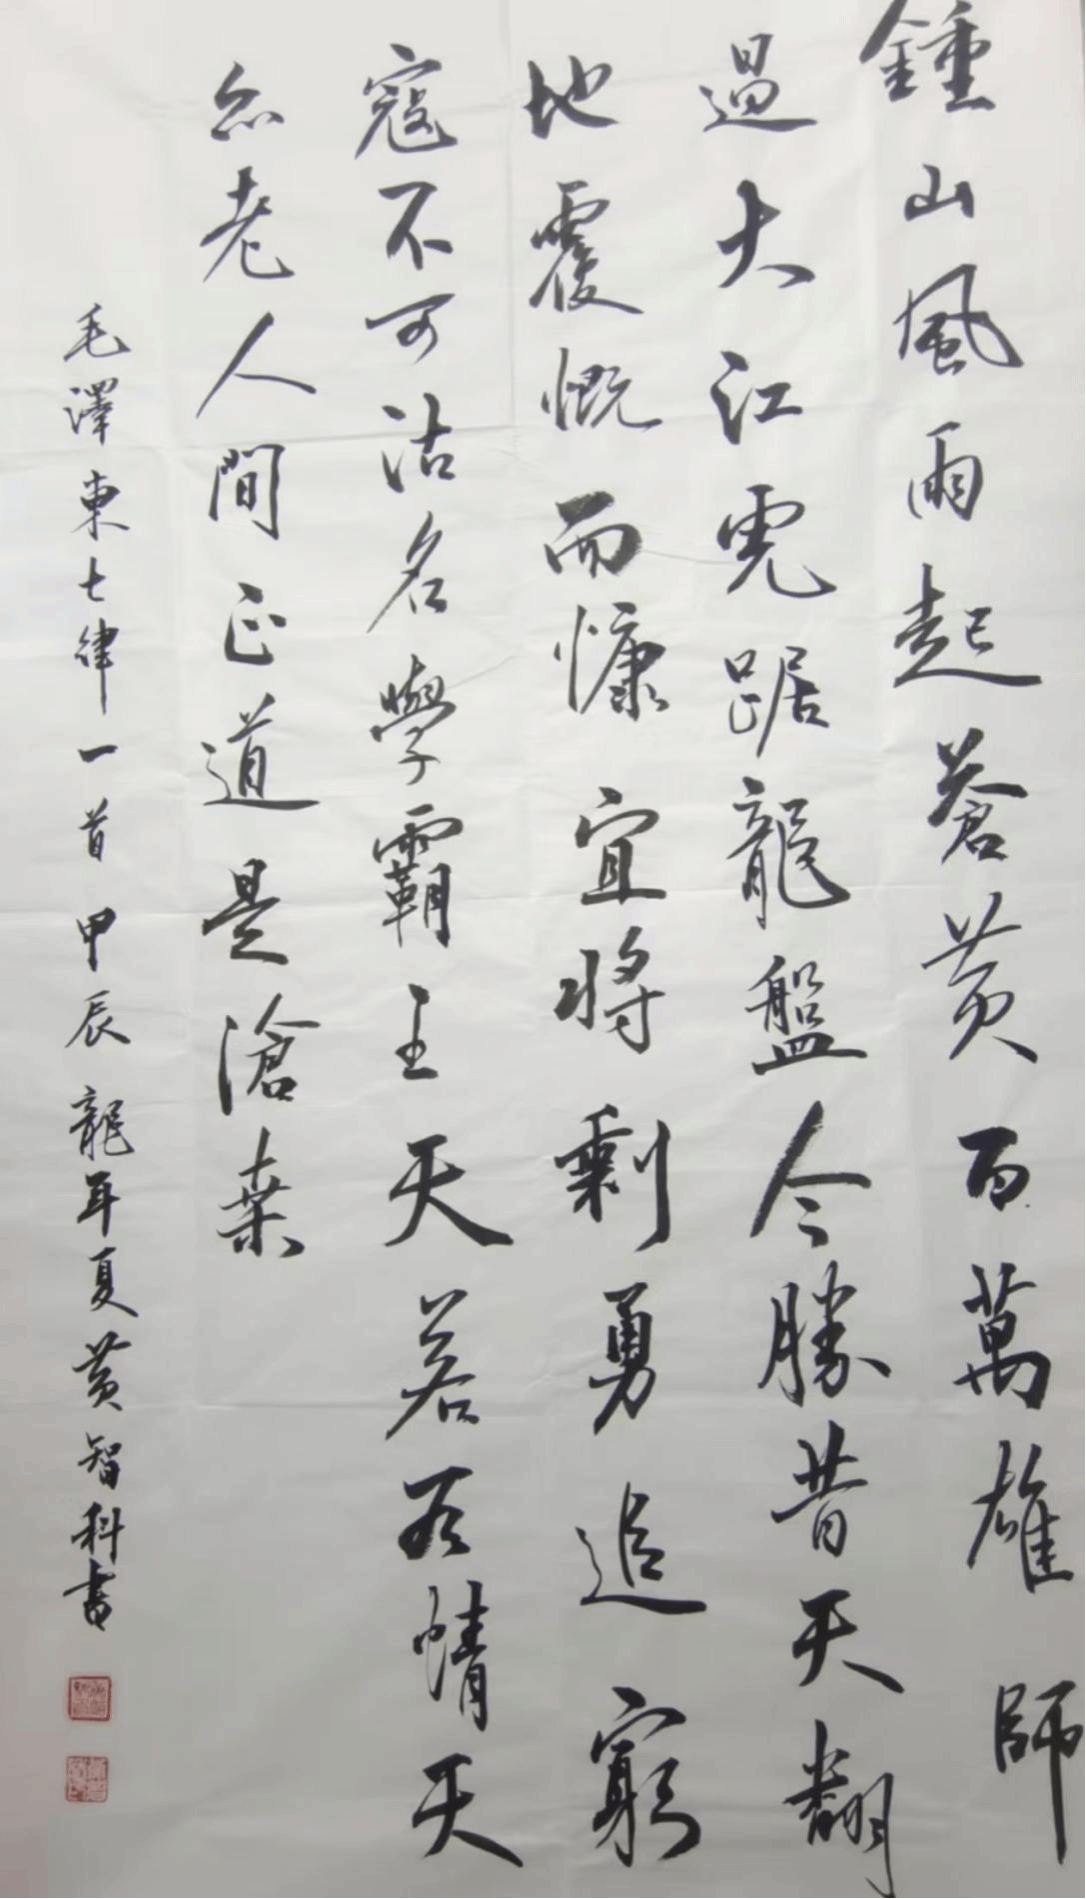 鍾山風雨起蒼黄百萬雄師
過大江虎踞龍盤今勝昔天翻
地覆慨而慷宜將剩勇追窮
寇不可沽名學霸王天若有情天
亦老人間正道是滄桑
毛澤東七律一首甲辰龍年夏黄智科書